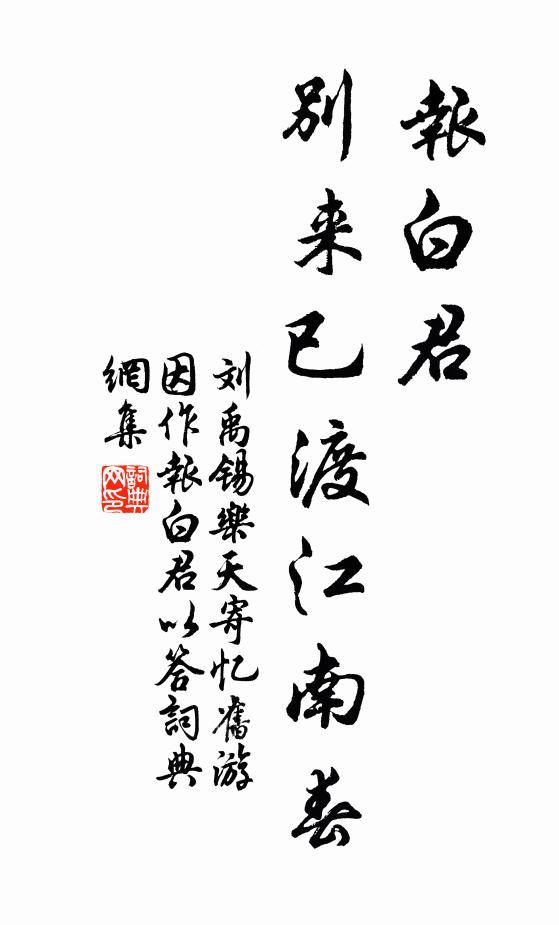 報白君
別来已渡江南春
刘禹锡樂天寄忆舊游
因作報白君以答詞典
網集
詞典
网印